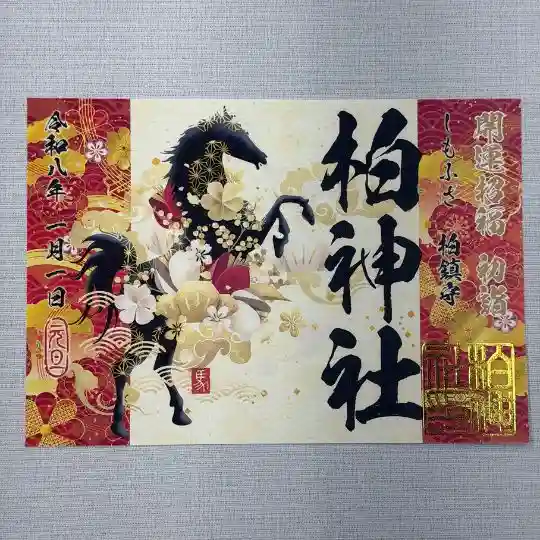 開運招福 初詣
しもふさ 柏鎮守
柏神社
馬
令和八年 一月一日
元旦